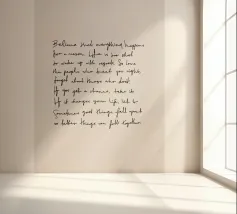 Believe that everything happens
for a reason. Life is too short
to wake up with regrets. So love
the people who treat you right,
forget about those who don't
If you get a chance, take it
If it changes your life, let it
Sometimes good things fall apart
so better things can fall together